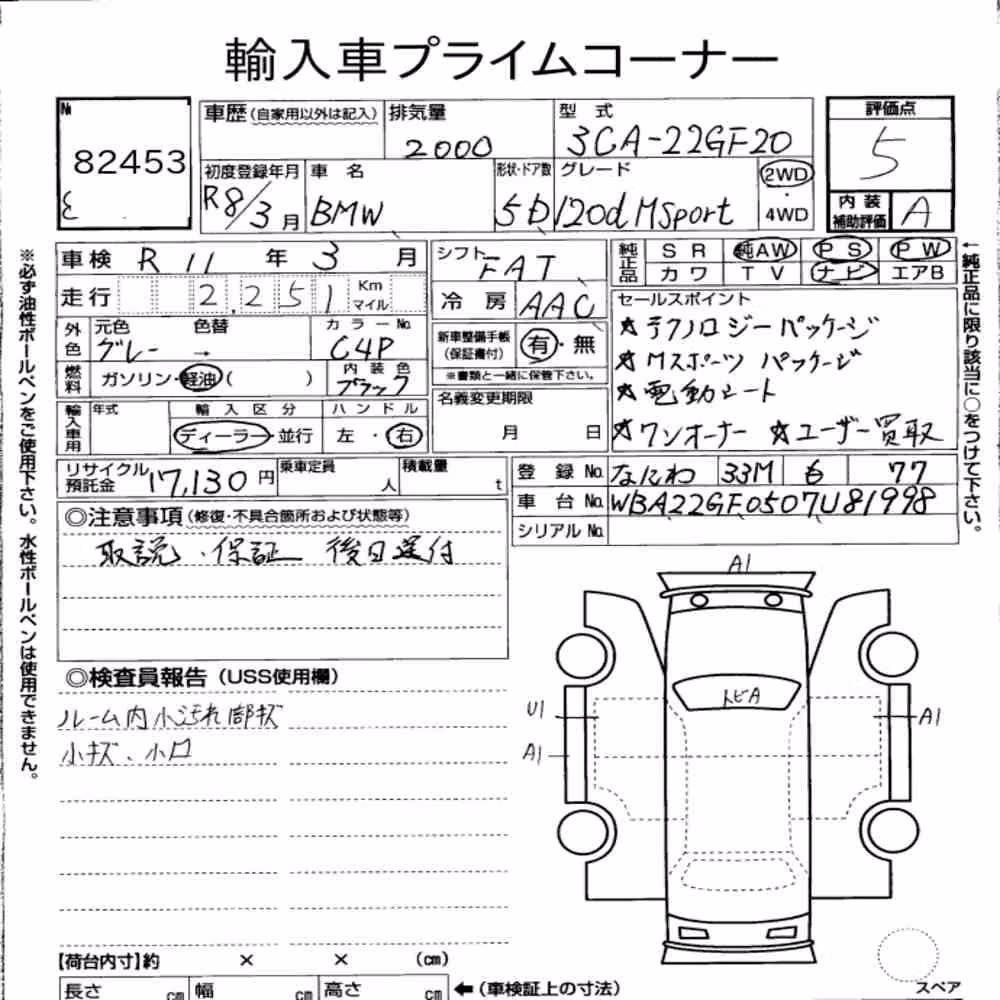 輸入車プライムコーナー
№
82453
車歴(自家用以外は記入)
排気量
2000
型 式
3CA-22GF20
評価点
5
初度登録年月
R8/3月
車 名
BMW
形状・ドア数
5D
グレード
120d M Sport
2WD
・
4WD
内 装
補助評価
A
車検 R 11 年 3 月
走行 2,251 Km マイル
外色
元色
グレー
色替
→
カラーNo.
C4P
燃料
ガソリン・軽油( )
内 装 色
ブラック
輸入車用
年式
輸 入 区 分
ディーラー・並行
ハ ン ド ル
左 ・ 右
シフト
FAT
冷 房
AAC
新車整備手帳
(保証書付)
有・無
※書類と一緒に保管下さい。
名義変更期限
月 日
純正品
S R
純AW
P S
P W
カ ワ
T V
ナ ビ
エアB
セールスポイント
★テクノロジーパッケージ
★Mスポーツ パッケージ
★電動シート
★ワンオーナー ★ユーザー買取
リサイクル
預託金
17,130 円
乗車定員
人
積載量
t
登 録 No. なにわ 33M る 77
車 台 No. WBA22GF0507U81998
シリアル No.
◎注意事項(修復・不具合箇所および状態等)
取説・保証 後日送付
◎検査員報告(USS使用欄)
ルーム内小汚れ部キズ
小キズ、小凹
A1
トビA
U1
A1
A1
【荷台内寸】約 × × (cm)
長さ cm
幅 cm
高さ cm
←(車検証上の寸法)
スペア
※必ず油性ボールペンをご使用下さい。水性ボールペンは使用できません。
←純正品に限り該当に○をつけて下さい。